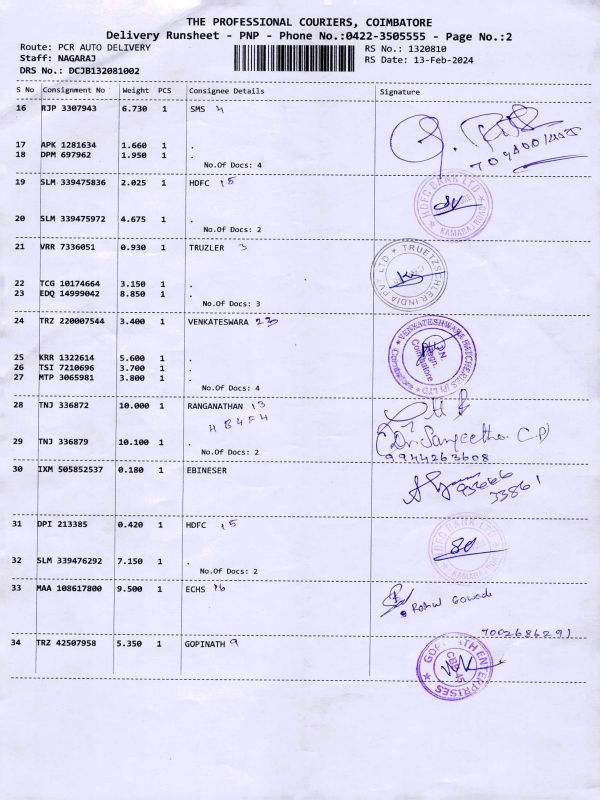 THE PROFESSIONAL COURIERS, COIMBATORE
Delivery Runsheet - PNP - Phone No.:0422-3505555 - Page No.:2
Route: PCR AUTO DELIVERY RS No.: 1320810
Staff: NAGARAJ RS Date: 13-Feb-2024
DRS No.: DCJB132081002
S No Consignment No Weight PCS Consignee Details Signature
16 RJP 3307943 6.730 1 SMS 4
17 APK 1281634 1.660 1 .
18 DPM 697962 1.950 1 .
No.Of Docs: 4
19 SLM 339475836 2.025 1 HDFC 15
HDFC BANK LTD
20 SLM 339475972 4.675 1 .
No.Of Docs: 2
21 VRR 7336051 0.930 1 TRUZLER 3
TRUETZSCHLER INDIA PVT LTD
22 TCG 10174664 3.150 1 .
23 EDQ 14999042 8.850 1 .
No.Of Docs: 3
24 TRZ 220007544 3.400 1 VENKATESWARA 23
VENKATESHWARA HATCHERIES (P) LTD
Coimbatore
25 KRR 1322614 5.600 1 .
26 TSI 7210696 3.700 1 .
27 MTP 3065981 3.800 1 .
No.Of Docs: 4
28 TNJ 336872 10.000 1 RANGANATHAN 13
H B4F4
29 TNJ 336879 10.100 1 .
(Dr. Sangeetha C.P)
No.Of Docs: 2
9944263608
30 IXM 505852537 0.180 1 EBINESER
93666
33861
31 DPI 213385 0.420 1 HDFC 15
HDFC BANK LTD
32 SLM 339476292 7.150 1 .
No.Of Docs: 2
33 MAA 108617800 9.500 1 ECHS 16
Rahul Gowda
7002686291
34 TRZ 42507958 5.350 1 GOPINATH 9
GOPINATH ENTERPRISES
CBE-45